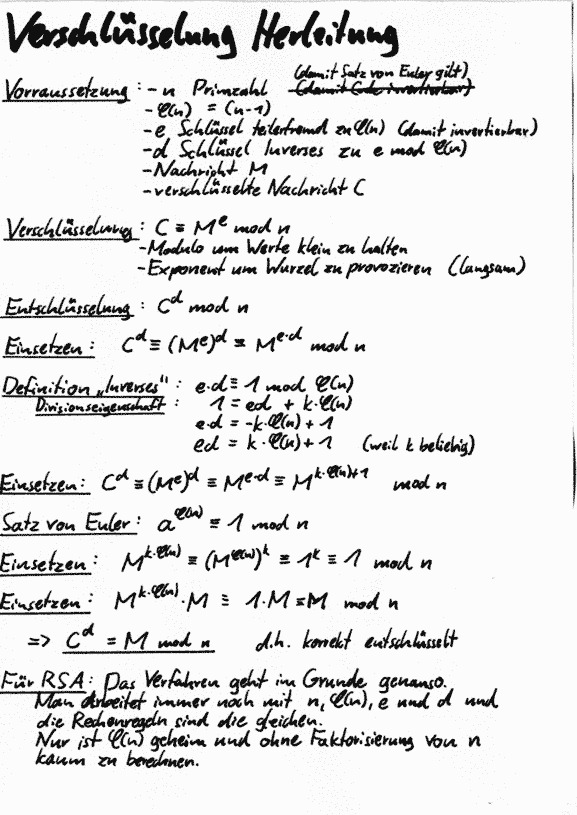 Verschlüsselung Herleitung
(damit Satz von Euler gilt)
Vorraussetzung : - n Primzahl (damit Code invertierbar)
- φ(n) = (n-1)
- e Schlüssel teilerfremd zu φ(n) (damit invertierbar)
- d Schlüssel Inverses zu e mod φ(n)
- Nachricht M
- verschlüsselte Nachricht C
Verschlüsselung : C ≡ M^e mod n
- Modulo um Werte klein zu halten
- Exponent um Wurzel zu provozieren (langsam)
Entschlüsselung : C^d mod n
Einsetzen : C^d ≡ (M^e)^d ≡ M^e·d mod n
Definition „Inverses" : e·d ≡ 1 mod φ(n)
Divisionseigenschaft : 1 = ed + k·φ(n)
e·d = -k·φ(n) + 1
ed = k·φ(n) + 1 (weil k beliebig)
Einsetzen : C^d ≡ (M^e)^d ≡ M^e·d ≡ M^k·φ(n)+1 mod n
Satz von Euler : a^φ(n) ≡ 1 mod n
Einsetzen : M^k·φ(n) ≡ (M^φ(n))^k ≡ 1^k ≡ 1 mod n
Einsetzen : M^k·φ(n) · M ≡ 1·M ≡ M mod n
=> C^d = M mod n d.h. korrekt entschlüsselt
Für RSA : Das Verfahren geht im Grunde genauso.
Man arbeitet immer noch mit n, φ(n), e und d und
die Rechenregeln sind die gleichen.
Nur ist φ(n) geheim und ohne Faktorisierung von n
kaum zu berechnen.